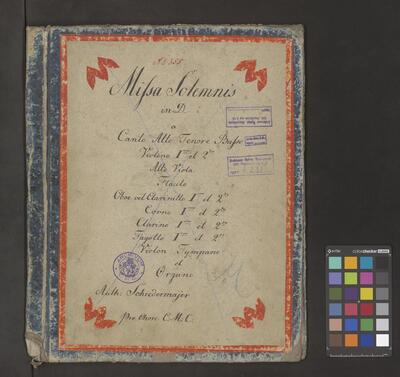 Missa Solemnis
in D
a
Canto Alto Tenore Basso
Violino I^mo et 2^do
Alto Viola
Flauto
Oboe vel Clarinetto I^mo et 2^do
Corno I^mo et 2^do
Clarino I^mo et 2^do
Fagotto I^mo et 2^do
Violon Tympano
et
Organo
Auth: Schiedermajer
pro Choro C. M. C.